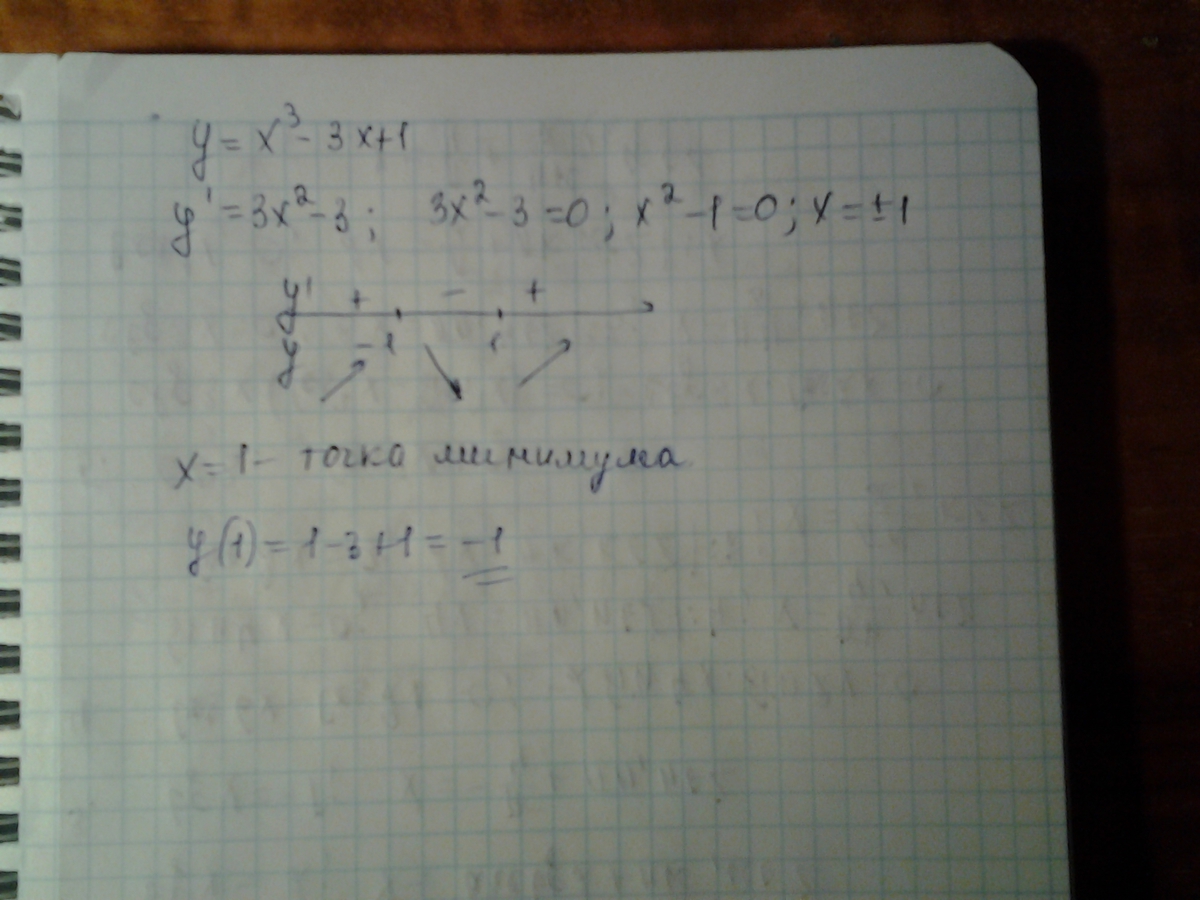 y = x³ - 3x+1
y' = 3x² - 3 ; 3x² - 3 = 0 ; x² - 1 = 0 ; x = ±1
y' + - +
y -1 1
x = 1 - точка минимума
y(1) = 1 - 3 + 1 = -1